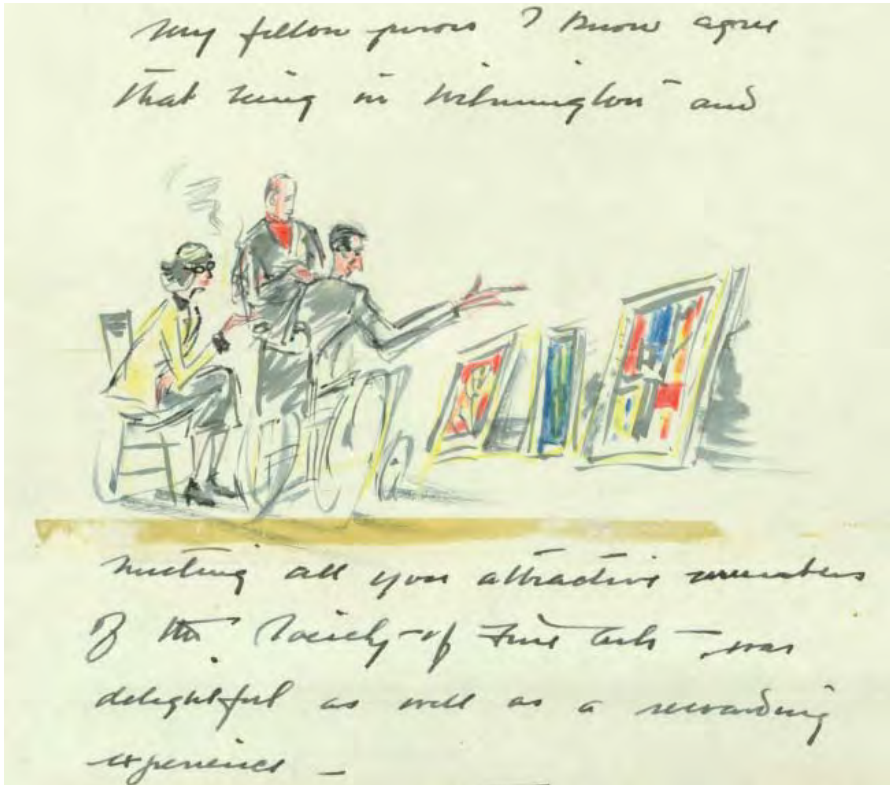 My fellow jurors I know agree
that being in Wilmington and
meeting all you attractive members
of the Society of Fine Arts – was
delightful as well as a rewarding
experience –